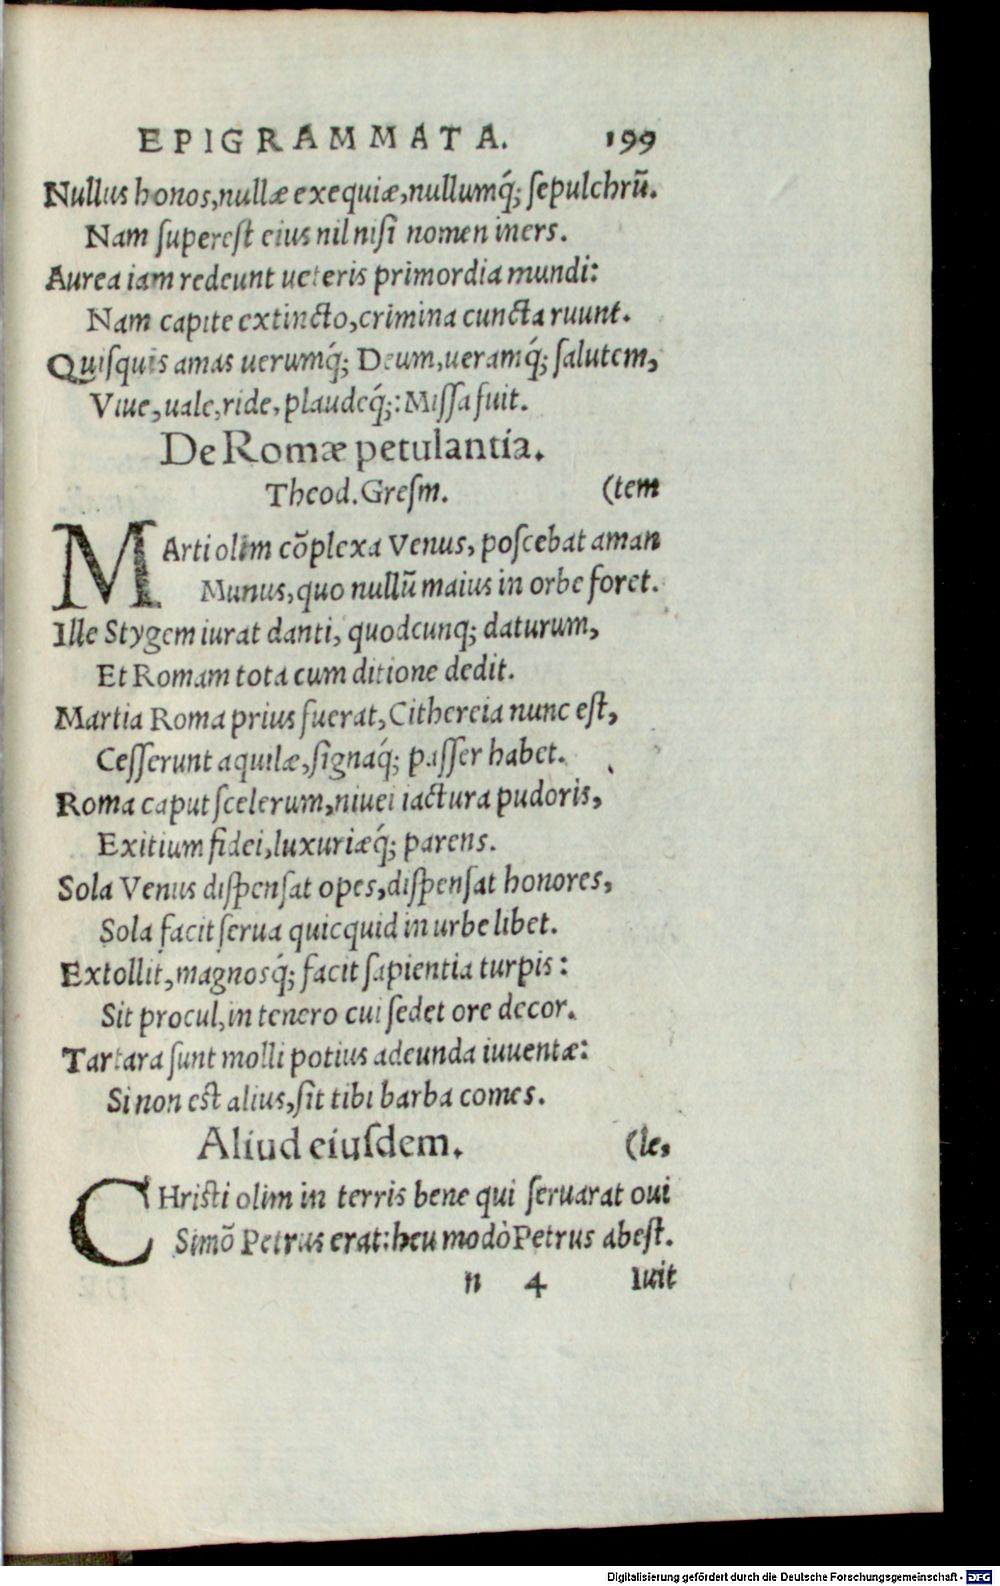 EPIGRAMMATA. 199
Nullus honos,nullæ exequiæ,nullumq́; ſepulchrū.
Nam ſupereſt eius nil niſi nomen iners.
Aurea iam redeunt ueteris primordia mundi:
Nam capite extincto,crimina cuncta ruunt.
Quiſquis amas uerumq́; Deum,ueramq́; ſalutem,
Viue,uale,ride,plaudeq́;:Miſſa fuit.
De Romæ petulantia.
Theod.Greſm. (tem
MArti olim cōplexa Venus, poſcebat aman
Munus,quo nullū maius in orbe foret.
Ille Stygem iurat danti, quodcunq; daturum,
Et Romam tota cum ditione dedit.
Martia Roma prius fuerat,Cithereia nunc eſt,
Ceſſerunt aquilæ,ſignaq́; paſſer habet.
Roma caput ſcelerum,niuei iactura pudoris,
Exitium fidei,luxuriæq́; parens.
Sola Venus diſpenſat opes,diſpenſat honores,
Sola facit ſerua quicquid in urbe libet.
Extollit,magnosq́; facit ſapientia turpis:
Sit procul,in tenero cui ſedet ore decor.
Tartara ſunt molli potius adeunda iuuentæ:
Si non eſt alius,ſit tibi barba comes.
Aliud eiuſdem. (le,
CHriſti olim in terris bene qui ſeruarat oui
Simō Petrus erat:heu modò Petrus abeſt.
n 4 Iuit
Digitalisierung gefördert durch die Deutsche Forschungsgemeinschaft - DFG